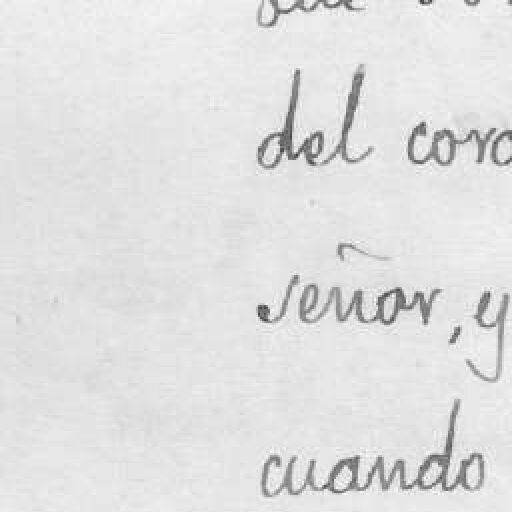 del coro
señor, y
cuando